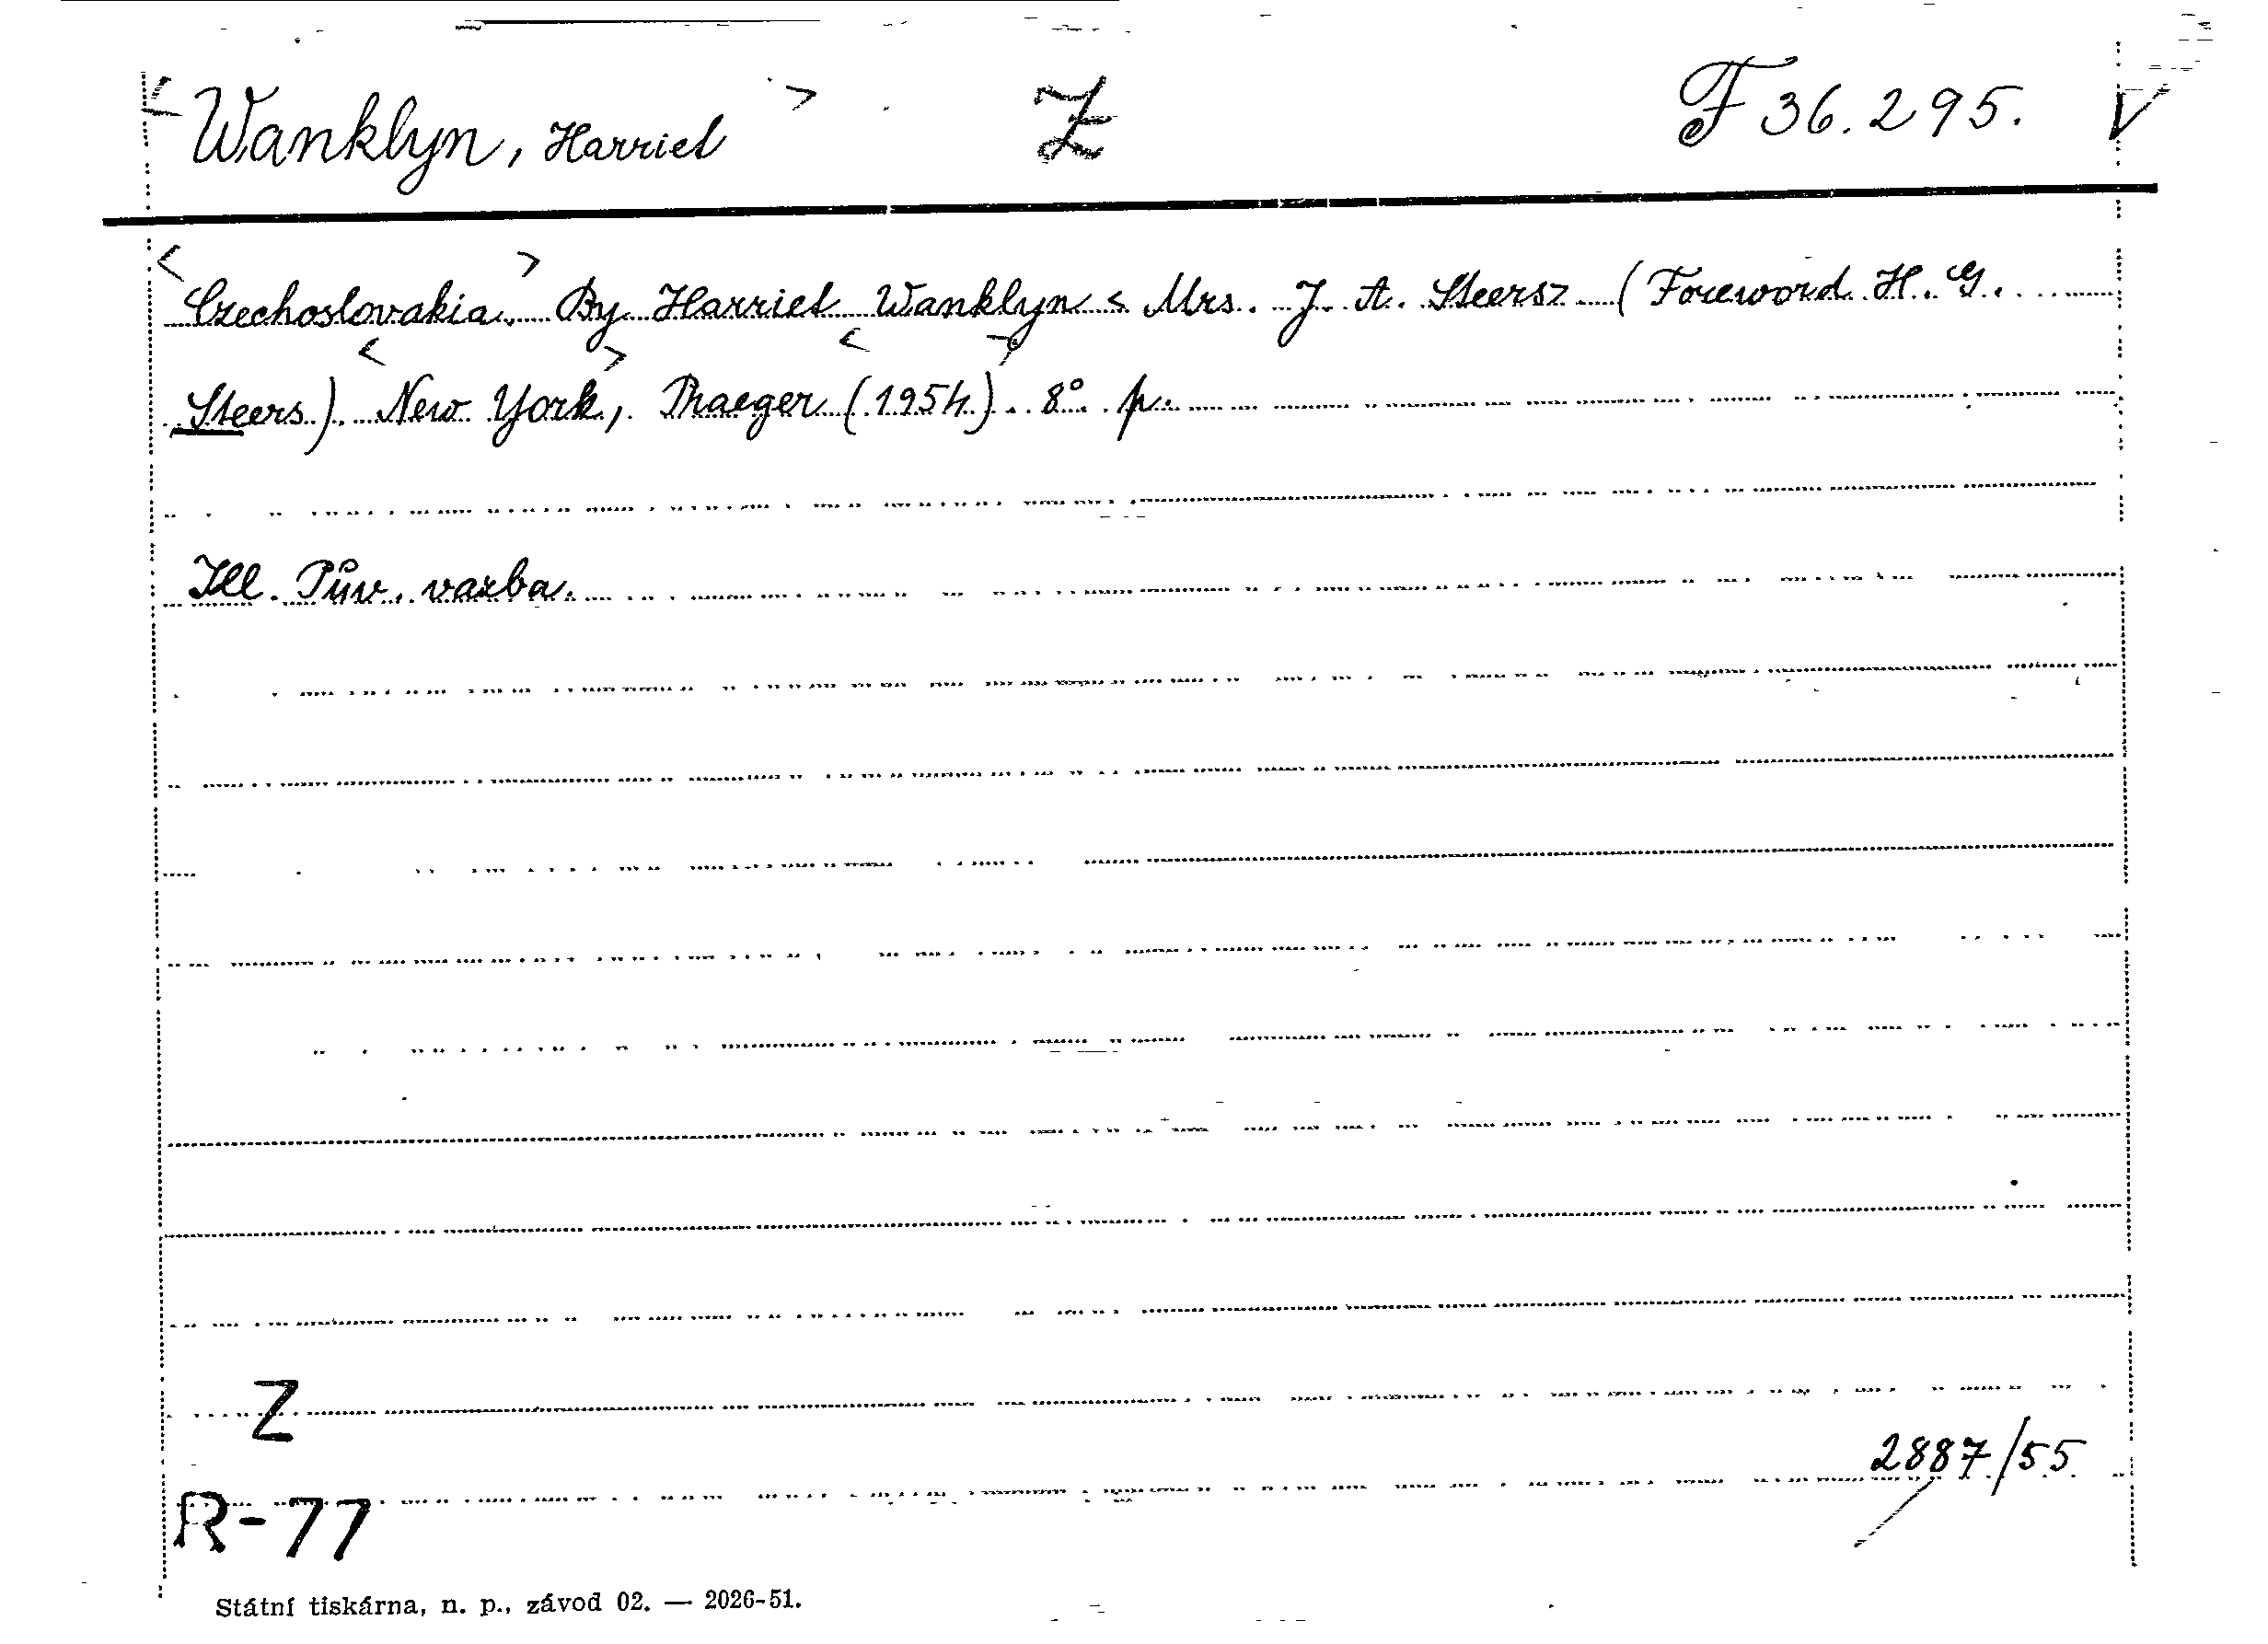 < Wanklyn, Harriet > Z F 36.295. V
< Czechoslovakia. > By Harriet Wanklyn < Mrs. J. A. Steers> (Foreword H. G.
Steers). < New York, > Praeger < (1954) >. 8° p.
Ill. Pův. vazba.
Z
2887/55
R-77
Státní tiskárna, n. p., závod 02. — 2026-51.